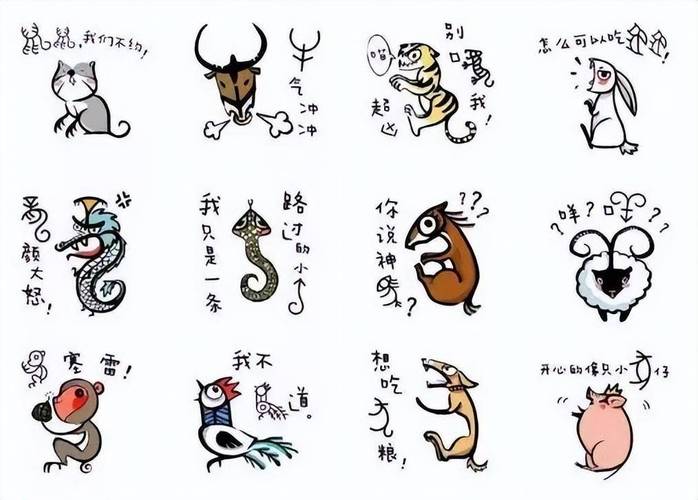 鼠鼠,我们不约!
牛气冲冲
喵
超凶
别唬我!
怎么可以吃兔兔!
龙颜大怒!
我只是一条
路过的小蛇
你说神马?
???
?咩?咩??
猴塞雷!
我不鸡道。
想吃犬粮!
开心的像只小豕仔